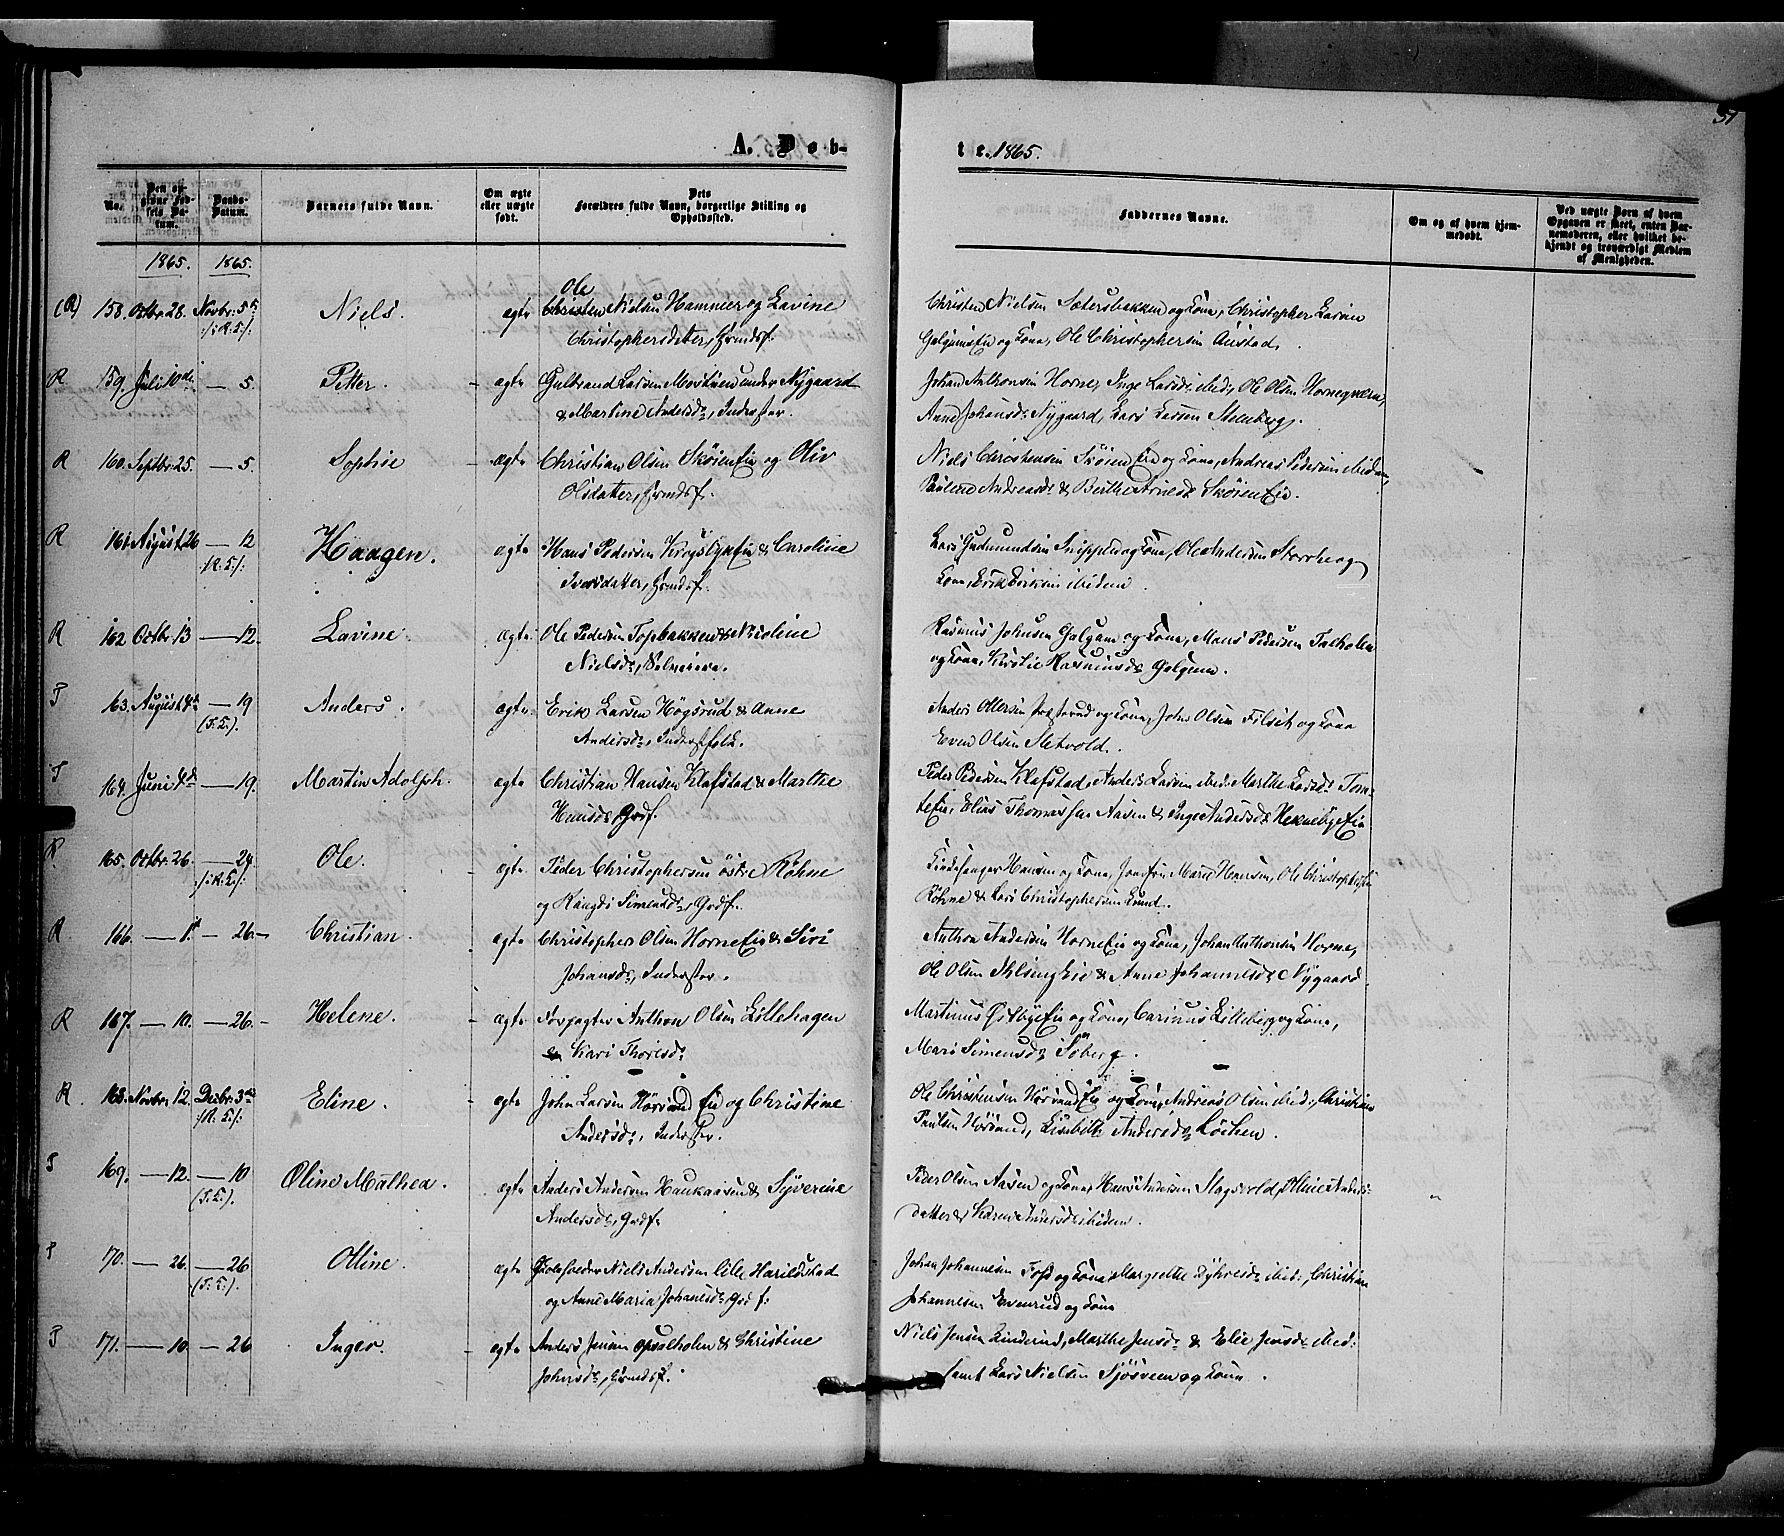 A. Døb-
te. 1865.
No.
Den opgivne Fødsels Datum.
Daabs-Datum.
Barnets fulde Navn.
Om ægte eller uægte født.
Dets Forældres fulde Navn, borgerlige Stilling og Opholdssted.
Faddernes Navne.
Om og af hvem hjemmedøbt.
Ved uægte Børn af hvem Opgaven er skeet, enten Barnemoderen, eller hvilket bekjendt og troværdigt Medlem af Menigheden.
1865. 1865.
(R) 158. Octbr. 28. Novbr. 5 Niels. ægte Ole Nielsen Hammer og Lavine
Christophersdatter, Grmdsf.
Christen Nielsen Sætersbakken og Kone, Christopher Larsen
og Kone, Ole Christophersen Austad.
R 159. Juli 10de — 5. Petter. ægte Gulbrand Larsen Mostuen under Nygaard
& Martine Andersd., Inderster.
Johan Anthonsen Horne, Inge Larsd. ibid., Ole Olsen Horneqværn,
Anne Johansd. Nygaard, Lars Larsen Stenberg.
R 160. Septbr. 25. — 5. Sophie ægte Christian Olsen Skøien Eie og Oliv
Olsdatter, Grmdsf.
Niels Christensen Skøien Eie og Kone, Andreas Pedersen ibidem,
Pauline Andreasd. & Berthe Arnesd. Skøien Eie.
R 161. August 26 — 12 Haagen. ægte Hans Pedersen Krogsby Eie & Caroline
Iversdatter, Grmdsf.
Lars Gudmundsen og Kone, Ole Andersen Storrberg
Kone, Erik Eriksen ibidem.
R 162 Octbr. 13 — 12. Lavine. ægte Ole Pedersen Topbakken & Nicoline
Nielsd.
Rasmus Johnsen Galgum og Kone, Mons Pedersen
og Kone, Kirstie Rasmusd. Galgum.
T 63. August — 19 (T. K). Anders. ægte Erik Larsen Høgsrud & Anne
Andersd., Inderstfolk.
Anders Ottersen og Kone, John Olsen Filseth og Kone
Even Olsen Sletvold.
T 164. Juni — 19. Martin Adolph. ægte Christian Hansen Klafstad & Marthe
Hansd., Grdf.
Peder Pedersen Klafstad, Anders Larsen ibid. Marthe Larsd. Tom-
te Eie, Elias Thomassen Aasen & Inge Andersd. Heknebye Eie
165. Octbr. 26. — 24. Ole. ægte Peder Christophersen østre Røhne
og Rangdi Simensd., Grdf.
Kirkesanger Hansen og Kone, Jomfru Marie Hansen, Ole Christophersen
Røhne & Lars Christophersen Lund.
R 166. — 1. — 26. Christian. ægte Christopher Olsen Horne Eie & Siri
Johansd., Inderster.
Anthon Andersen Horne Eie og Kone, Johan Anthonsen Horne,
Ole Olsen & Anne Johannesd. Nygaard
R 167. — 10. — 26. Helene. ægte Forpagter Anthon Olsen Lillehagen
& Kari Thoresd.
Martinus Østbye Eie og Kone, Carinus Lilleberg og Kone,
Mari Simensd. Søberg.
R. 168. Novbr. 12. Decbr. 3 Eline. ægte John Larsen Hørsand Eie og Christine
Andersd., Inderster.
Ole Christensen Hørsand Eie og Kone, Andreas Olsen ibid., Christian
Paulsen Hørsand, Lisebeth Andersd. Løchen.
T 169. — 12. — 10 (T. K). Oline Mathea. ægte Anders Andersen Haukaasen & Syverine
Andersd., Grdf.
Peder Olsen Aasen og Kone, Hans Andersen Slagsvold, Oline Anders-
datter & Karen Andersd. ibidem.
T 170. — 26. — 26 (T. K). Olline. ægte Niels Andersen lille Harildstad
og Anne Maria Johannesd. Grdf.
Johan Johannesen og Kone, Margrethe ibid., Christian
Johannesen Evenrud og Kone
T 171. — 10. — 26 Inger. ægte Anders Jensen Opsalholen & Christine
Johnsd., Grmdsf.
Niels Jensen Linderud, Marthe Jensd. & Elie Jensd. ibid:
samt Lars Nielsen Sjøsveen og Kone.